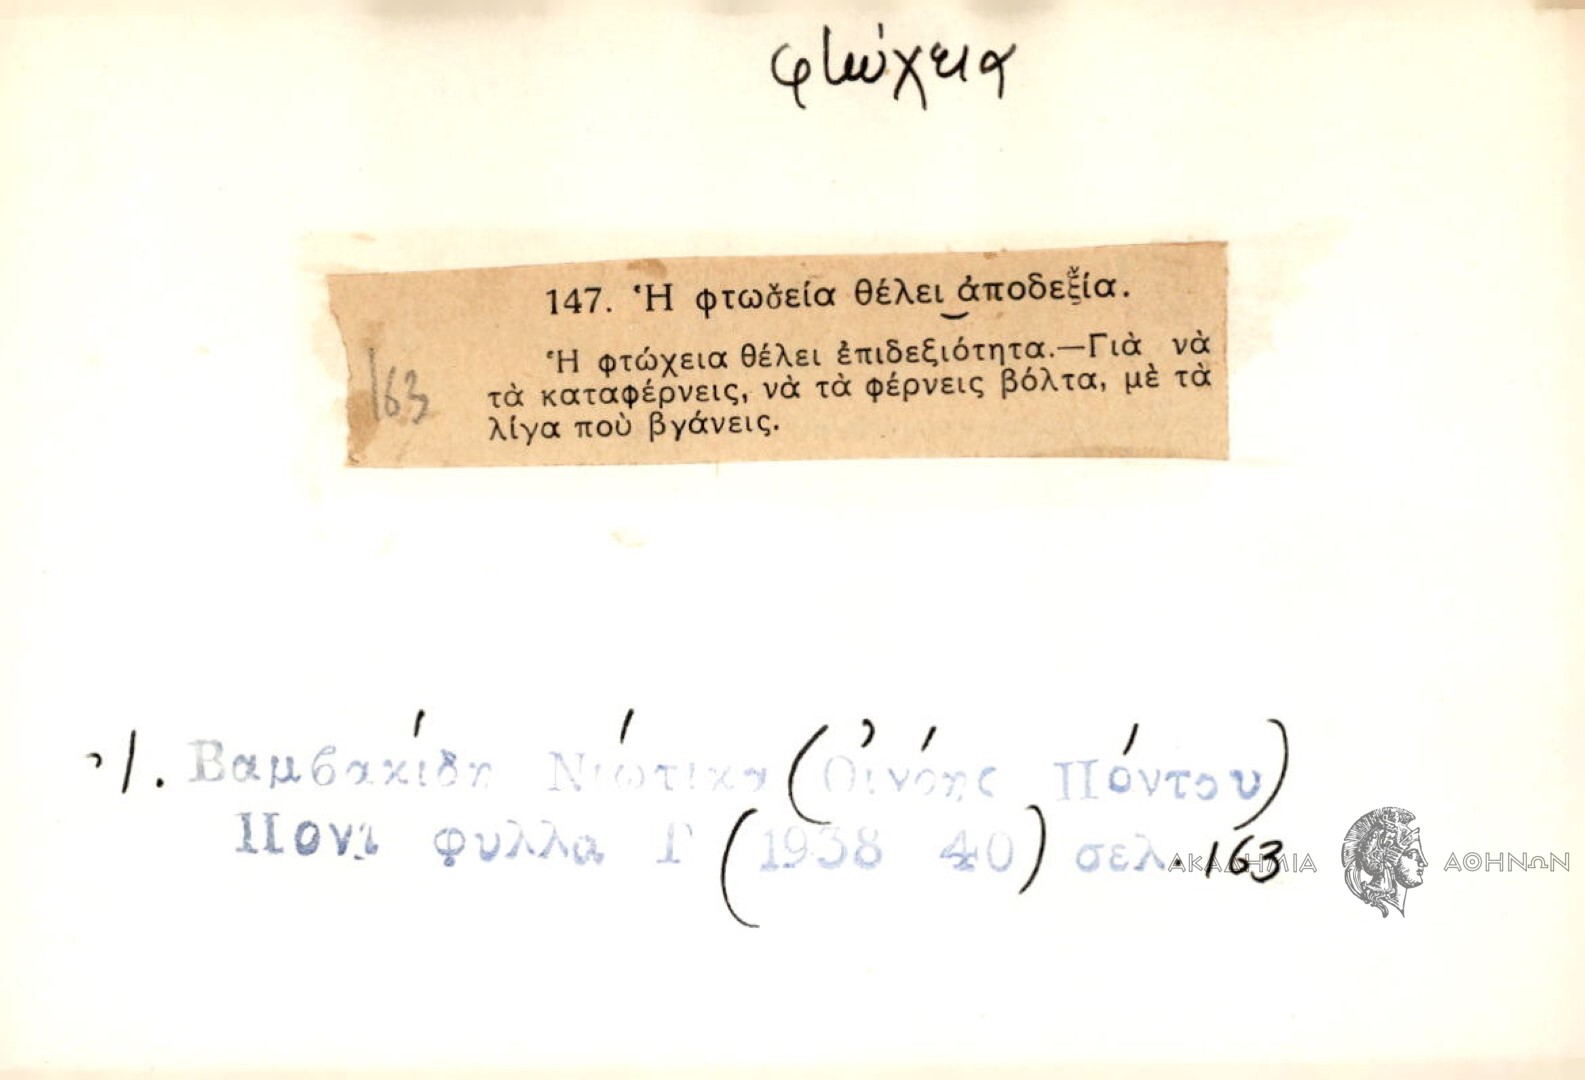 φτώχεια
147. Ἡ φτωσ̌εία θέλει ἀποδεξ̌ία.
Ἡ φτώχεια θέλει ἐπιδεξιότητα.—Γιὰ νὰ
τὰ καταφέρνεις, νὰ τὰ φέρνεις βόλτα, μὲ τὰ
λίγα ποὺ βγάνεις.
163
Ἰ. Βαμβακίδη Νιώτικα (Οἰνόης Πόντου)
Ποντ φυλλα Γ (1938 40) σελ. 163
ΑΚΑΔΗΜΙΑ ΑΘΗΝΩΝ